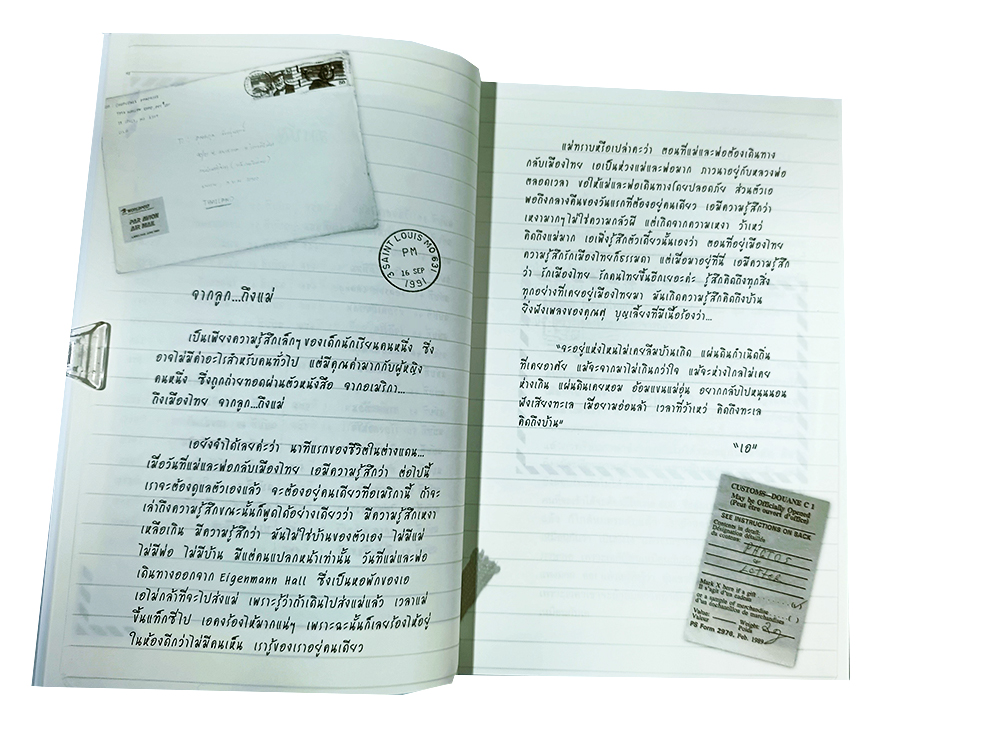 PAR AVION
AIR MAIL
THAILAND
SAINT LOUIS MO 631
PM
16 SEP
1991
จากลูก...ถึงแม่
เป็นเพียงความรู้สึกเล็กๆ ของเด็กนักเรียนคนหนึ่ง ซึ่ง
อาจไม่มีค่าอะไรสำหรับคนทั่วไป แต่มีคุณค่ามากกับผู้หญิง
คนหนึ่ง ซึ่งถูกถ่ายทอดผ่านตัวหนังสือ จากอเมริกา...
ถึงเมืองไทย จากลูก...ถึงแม่
เอยังจำได้เลยค่ะว่า นาทีแรกของชีวิตในต่างแดน...
เมื่อวันที่แม่และพ่อกลับเมืองไทย เอมีความรู้สึกว่า ต่อไปนี้
เราจะต้องดูแลตัวเองแล้ว จะต้องอยู่คนเดียวที่อเมริกานี้ ถ้าจะ
เล่าถึงความรู้สึกขณะนั้นก็พูดได้อย่างเดียวว่า มีความรู้สึกเหงา
เหลือเกิน มีความรู้สึกว่า มันไม่ใช่บ้านของตัวเอง ไม่มีแม่
ไม่มีพ่อ ไม่มีบ้าน มีแต่คนแปลกหน้าเท่านั้น วันที่แม่และพ่อ
เดินทางออกจาก Eigenmann Hall ซึ่งเป็นหอพักของเอ
เอไม่กล้าที่จะไปส่งแม่ เพราะรู้ว่าถ้าเดินไปส่งแม่แล้ว เวลาแม่
ขึ้นแท็กซี่ไป เอคงร้องไห้มากแน่ๆ เพราะฉะนั้นก็เลยร้องไห้อยู่
ในห้องดีกว่าไม่มีคนเห็น เรารู้ของเราอยู่คนเดียว
แม่ทราบหรือเปล่าคะว่า ตอนที่แม่และพ่อต้องเดินทาง
กลับเมืองไทย เอเป็นห่วงแม่และพ่อมาก ภาวนาอยู่กับหลวงพ่อ
ตลอดเวลา ขอให้แม่และพ่อเดินทางโดยปลอดภัย ส่วนตัวเอ
พอถึงกลางคืนของวันแรกที่ต้องอยู่คนเดียว เอมีความรู้สึกว่า
เหงามากๆ ไม่ใช่ความกลัวผี แต่เกิดจากความเหงา ว้าเหว่
คิดถึงแม่มาก เอเพิ่งรู้สึกตัวเดี๋ยวนั้นเองว่า ตอนที่อยู่เมืองไทย
ความรู้สึกรักเมืองไทยก็ธรรมดา แต่เมื่อมาอยู่ที่นี่ เอมีความรู้สึก
ว่า รักเมืองไทย รักคนไทยขึ้นอีกเยอะค่ะ รู้สึกคิดถึงทุกสิ่ง
ทุกอย่างที่เคยอยู่เมืองไทยมา มันเกิดความรู้สึกคิดถึงบ้าน
ยิ่งฟังเพลงของคุณศุ บุญเลี้ยงที่มีเนื้อร้องว่า...
"จะอยู่แห่งไหนไม่เคยลืมบ้านเกิด แผ่นดินกำเนิดถิ่น
ที่เคยอาศัย แม้จะจากมาไม่เกินกว่าใจ แม้จะห่างไกลไม่เคย
ห่างเกิน แผ่นดินเคยหอม อ้อมแขนแม่อุ่น อยากกลับไปหนุนนอน
ฟังเสียงทะเล เมื่อยามอ่อนล้า เวลาที่ว้าเหว่ คิดถึงทะเล
คิดถึงบ้าน"
"เอ"
CUSTOMS—DOUANE C 1
May be Officially Opened
(Peut être ouvert d'office)
SEE INSTRUCTIONS ON BACK
Contents in detail:
Désignation détaillée
du contenu:
PHOTOS
LETTER
Mark X here if a gift
Il s'agit d'un cadeau
or a sample of merchandise
d'un échantillon de marchandises
Value:
Valeur
Weight:
Poids
PS Form 2976, Feb. 1989